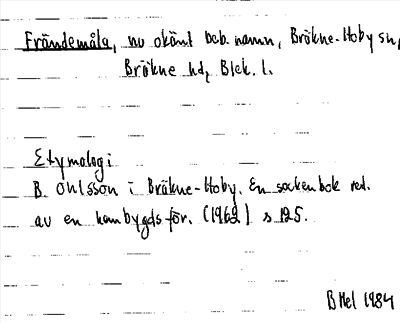 Frändemåla, nu okänt beb.namn, Bräkne-Hoby sn,
Bräkne hd, Blek. l.
Etymologi
B. Ohlsson i Bräkne-Hoby. En sockenbok red.
av en hembygdsför. (1962) s 125.
B Hel 1984